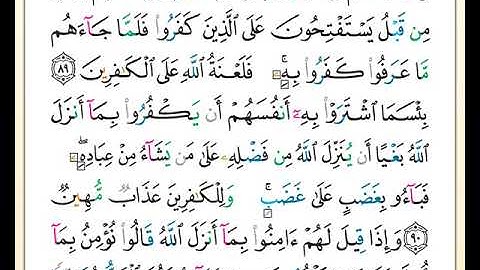 مِن قَبْلُ يَسْتَفْتِحُونَ عَلَى ٱلَّذِينَ كَفَرُوا۟ فَلَمَّا جَآءَهُم
مَّا عَرَفُوا۟ كَفَرُوا۟ بِهِۦ ۚ فَلَعْنَةُ ٱللَّهِ عَلَى ٱلْكَـٰفِرِينَ ٨٩
بِئْسَمَا ٱشْتَرَوْا۟ بِهِۦٓ أَنفُسَهُمْ أَن يَكْفُرُوا۟ بِمَآ أَنزَلَ
ٱللَّهُ بَغْيًا أَن يُنَزِّلَ ٱللَّهُ مِن فَضْلِهِۦ عَلَىٰ مَن يَشَآءُ مِنْ عِبَادِهِۦ ۖ
فَبَآءُو بِغَضَبٍ عَلَىٰ غَضَبٍ ۚ وَلِلْكَـٰفِرِينَ عَذَابٌ مُّهِينٌ
٩٠ وَإِذَا قِيلَ لَهُمْ ءَامِنُوا۟ بِمَآ أَنزَلَ ٱللَّهُ قَالُوا۟ نُؤْمِنُ بِمَآ